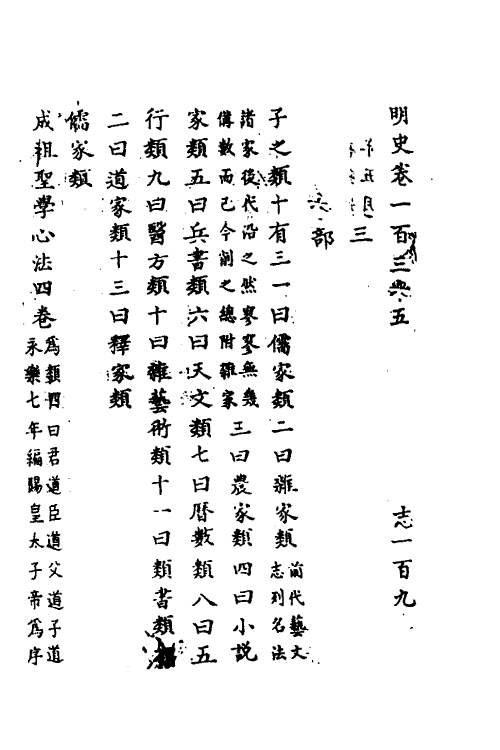 明史卷一百三五 志一百九
三
部
子之類十有三一曰儒家類二曰雜家類前代藝文志列名法
諸家後代沿之然寥寥無幾備數而已今削之總附雜家三曰農家類四曰小説
家類五曰兵書類六曰天文類七曰曆數類八曰五
行類九曰醫方類十曰雜藝術類十一曰類書類
二曰道家類十三曰釋家類
儒家類
成祖聖學心法四卷為類四曰君道臣道父道子道永樂七年編賜皇太子帝為序